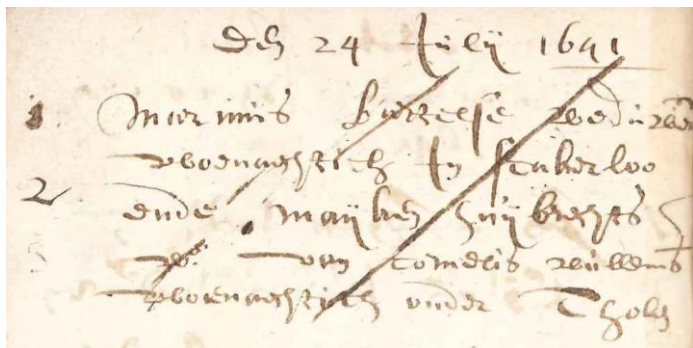 den 24 July 1641
1 Marinus wedur
woenachtich In Stakerloo
2 ende Mayken huybrechts
wed van Cornelis willems
woenachtich onder Tholen